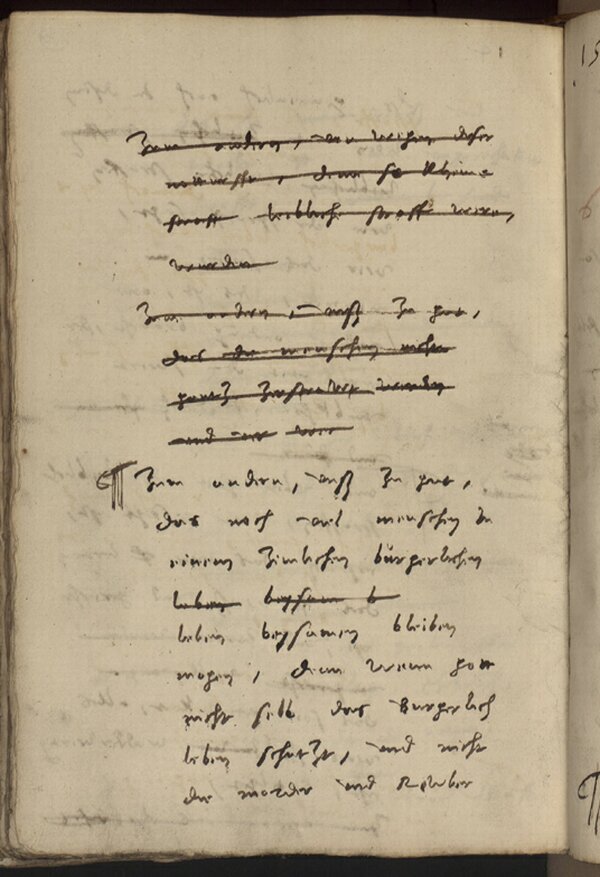 1
Zum andern, von wegen dieser
denn so kheine
straff leibliche straff were,
wurden
Zum andern, auß Zu gut,
das die menschen nicht
gantz Zerstrawet werden
und
¶ Zum andern, auß Zu gut,
das noch viel menschen in
einem Zimlichen bürgerlichen
leben beysam b
leben beysamen bleiben
mogen, denn wenn gott
nicht selb das Burgerlich
leben schutzt, und nicht
die morder und Reuber
15